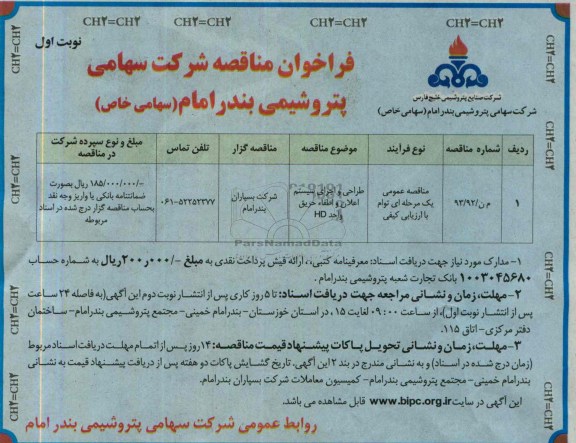 CH2=CH2 CH2=CH2 CH2=CH2 CH2=CH2 CH2=CH2
نوبت اول
فراخوان مناقصه شرکت سهامی
پتروشیمی بندر امام (سهامی خاص)
شرکت صنایع پتروشیمی خلیج فارس
شرکت سهامی پتروشیمی بندر امام (سهامی خاص)
ردیف شماره مناقصه نوع فرآیند موضوع مناقصه مناقصه گزار تلفن تماس مبلغ و نوع سپرده شرکت در مناقصه
۱ م ن/۹۳/۹۲ مناقصه عمومی یک مرحله ای توام با ارزیابی کیفی طراحی و اجرای سیستم اعلان و اطفاء حریق واحد HD شرکت بسپاران بندرامام ۰۶۱-۵۲۲۵۲۳۷۷ ۱۸۵/۰۰۰/۰۰۰/- ریال بصورت ضمانتنامه بانکی یا واریز وجه نقد بحساب مناقصه گزار درج شده در اسناد مربوطه
ParsNamadData
۱- مدارک مورد نیاز جهت دریافت اسناد: معرفینامه کتبی، ارائه فیش پرداخت نقدی به مبلغ -/۲۰۰ر۰۰۰ ریال به شماره حساب
۱۰۰۳۰۴۵۶۸۰ بانک تجارت شعبه پتروشیمی بندرامام.
۲- مهلت، زمان و نشانی مراجعه جهت دریافت اسناد: تا ۵ روز کاری پس از انتشار نوبت دوم این آگهی (به فاصله ۲۴ ساعت
پس از انتشار نوبت اول)، از ساعت ۰۹:۰۰ لغایت ۱۵، در استان خوزستان- بندرامام خمینی- مجتمع پتروشیمی بندرامام- ساختمان
دفتر مرکزی- اتاق ۱۱۵.
۳- مهلت، زمان و نشانی تحویل پاکات پیشنهاد قیمت مناقصه: ۱۴ روز پس از اتمام مهلت دریافت اسناد مربوط
(زمان درج شده در اسناد) و به نشانی مندرج در بند ۲ این آگهی. تاریخ گشایش پاکات دو هفته پس از دریافت پیشنهاد قیمت به نشانی
بندرامام خمینی- مجتمع پتروشیمی بندرامام- کمیسیون معاملات شرکت بسپاران بندرامام.
این آگهی در سایت www.bipc.org.ir قابل مشاهده می باشد.
روابط عمومی شرکت سهامی پتروشیمی بندر امام